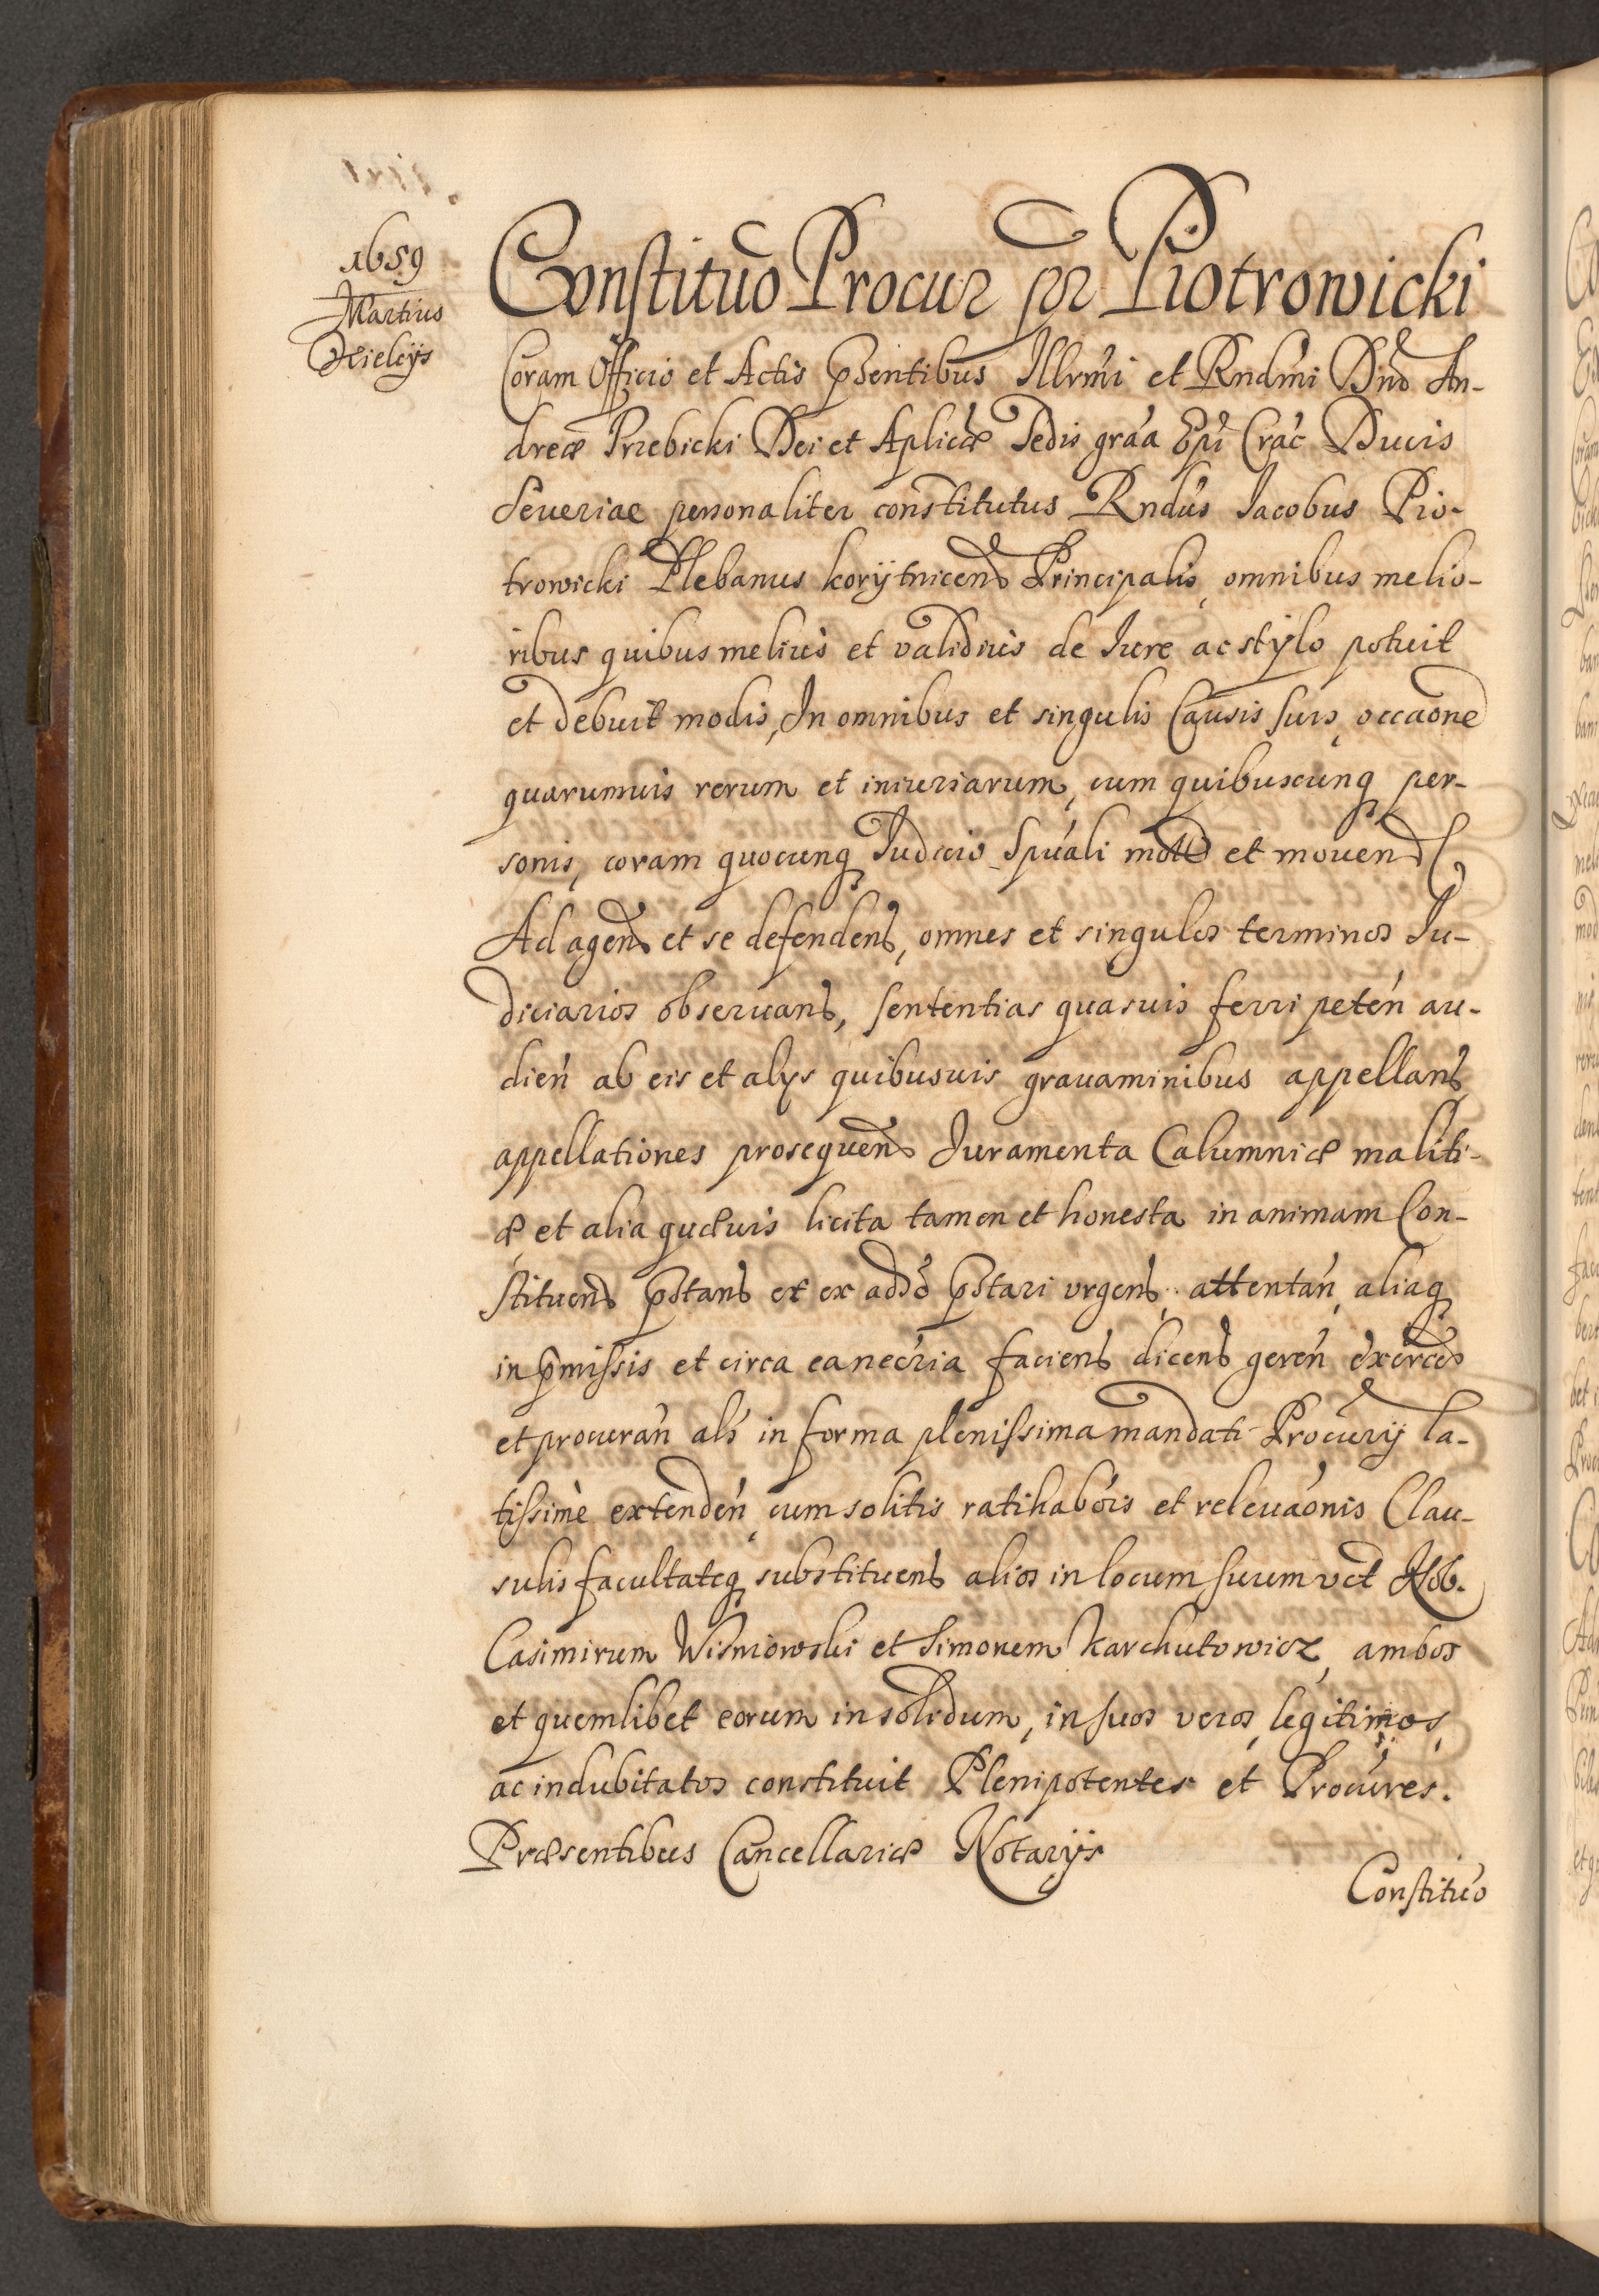 1659
Martius
Kielcijs
Constituo Procur pr Piotrowicki
Coram Officio et Actis psentibus Illrmi et Rndmi Dnd An-
dreæ Trzebicki Dei et Aplicæ Sedis graa Epi Crac Ducis
Seueriae personaliter constitutus Rndus Iacobus Pio-
trowicki Plebanus korijtnicens Principalis, omnibus melio-
ribus quibus melius et validius de Iure ac stÿlo potuit
et debuit modis, In omnibus et singulis Causis suis, occaone
quarumuis rerum et iniuriarum, cum quibuscunq per-
sonis, coram quocunq Iudicio Spuali mott et mouend
Ad agend et se defendend, omnes et singulos terminos Iu-
diciarios obseruand, sententias quasuis ferri peten au-
dien ab eis et alys quibusuis grauaminibus appelland
appellationes prosequend Iuramenta Calumniæ maliti-
æ, et alia quæuis licita tamen et honesta in animam Con-
stituend pstand et ex addo pstari urgend, attentan, aliaq
in pmissis et circa ea necria faciend dicend geren exerced
et procuran als in forma plenissima mandati Procurij la-
tissimè extenden, cum solitis ratihabois et releuaonis Clau-
sulis facultateq substituend alios in locum suum vct Nob.
Casimirum Wisniowski et Simonem Karchutowicz, ambos
et quemlibet eorum in solidum, in suos veros, legitimos,
ac indubitatos constituit Plenipotentes et Procures.
Præsentibus Cancellariæ Notarijs
Constituo